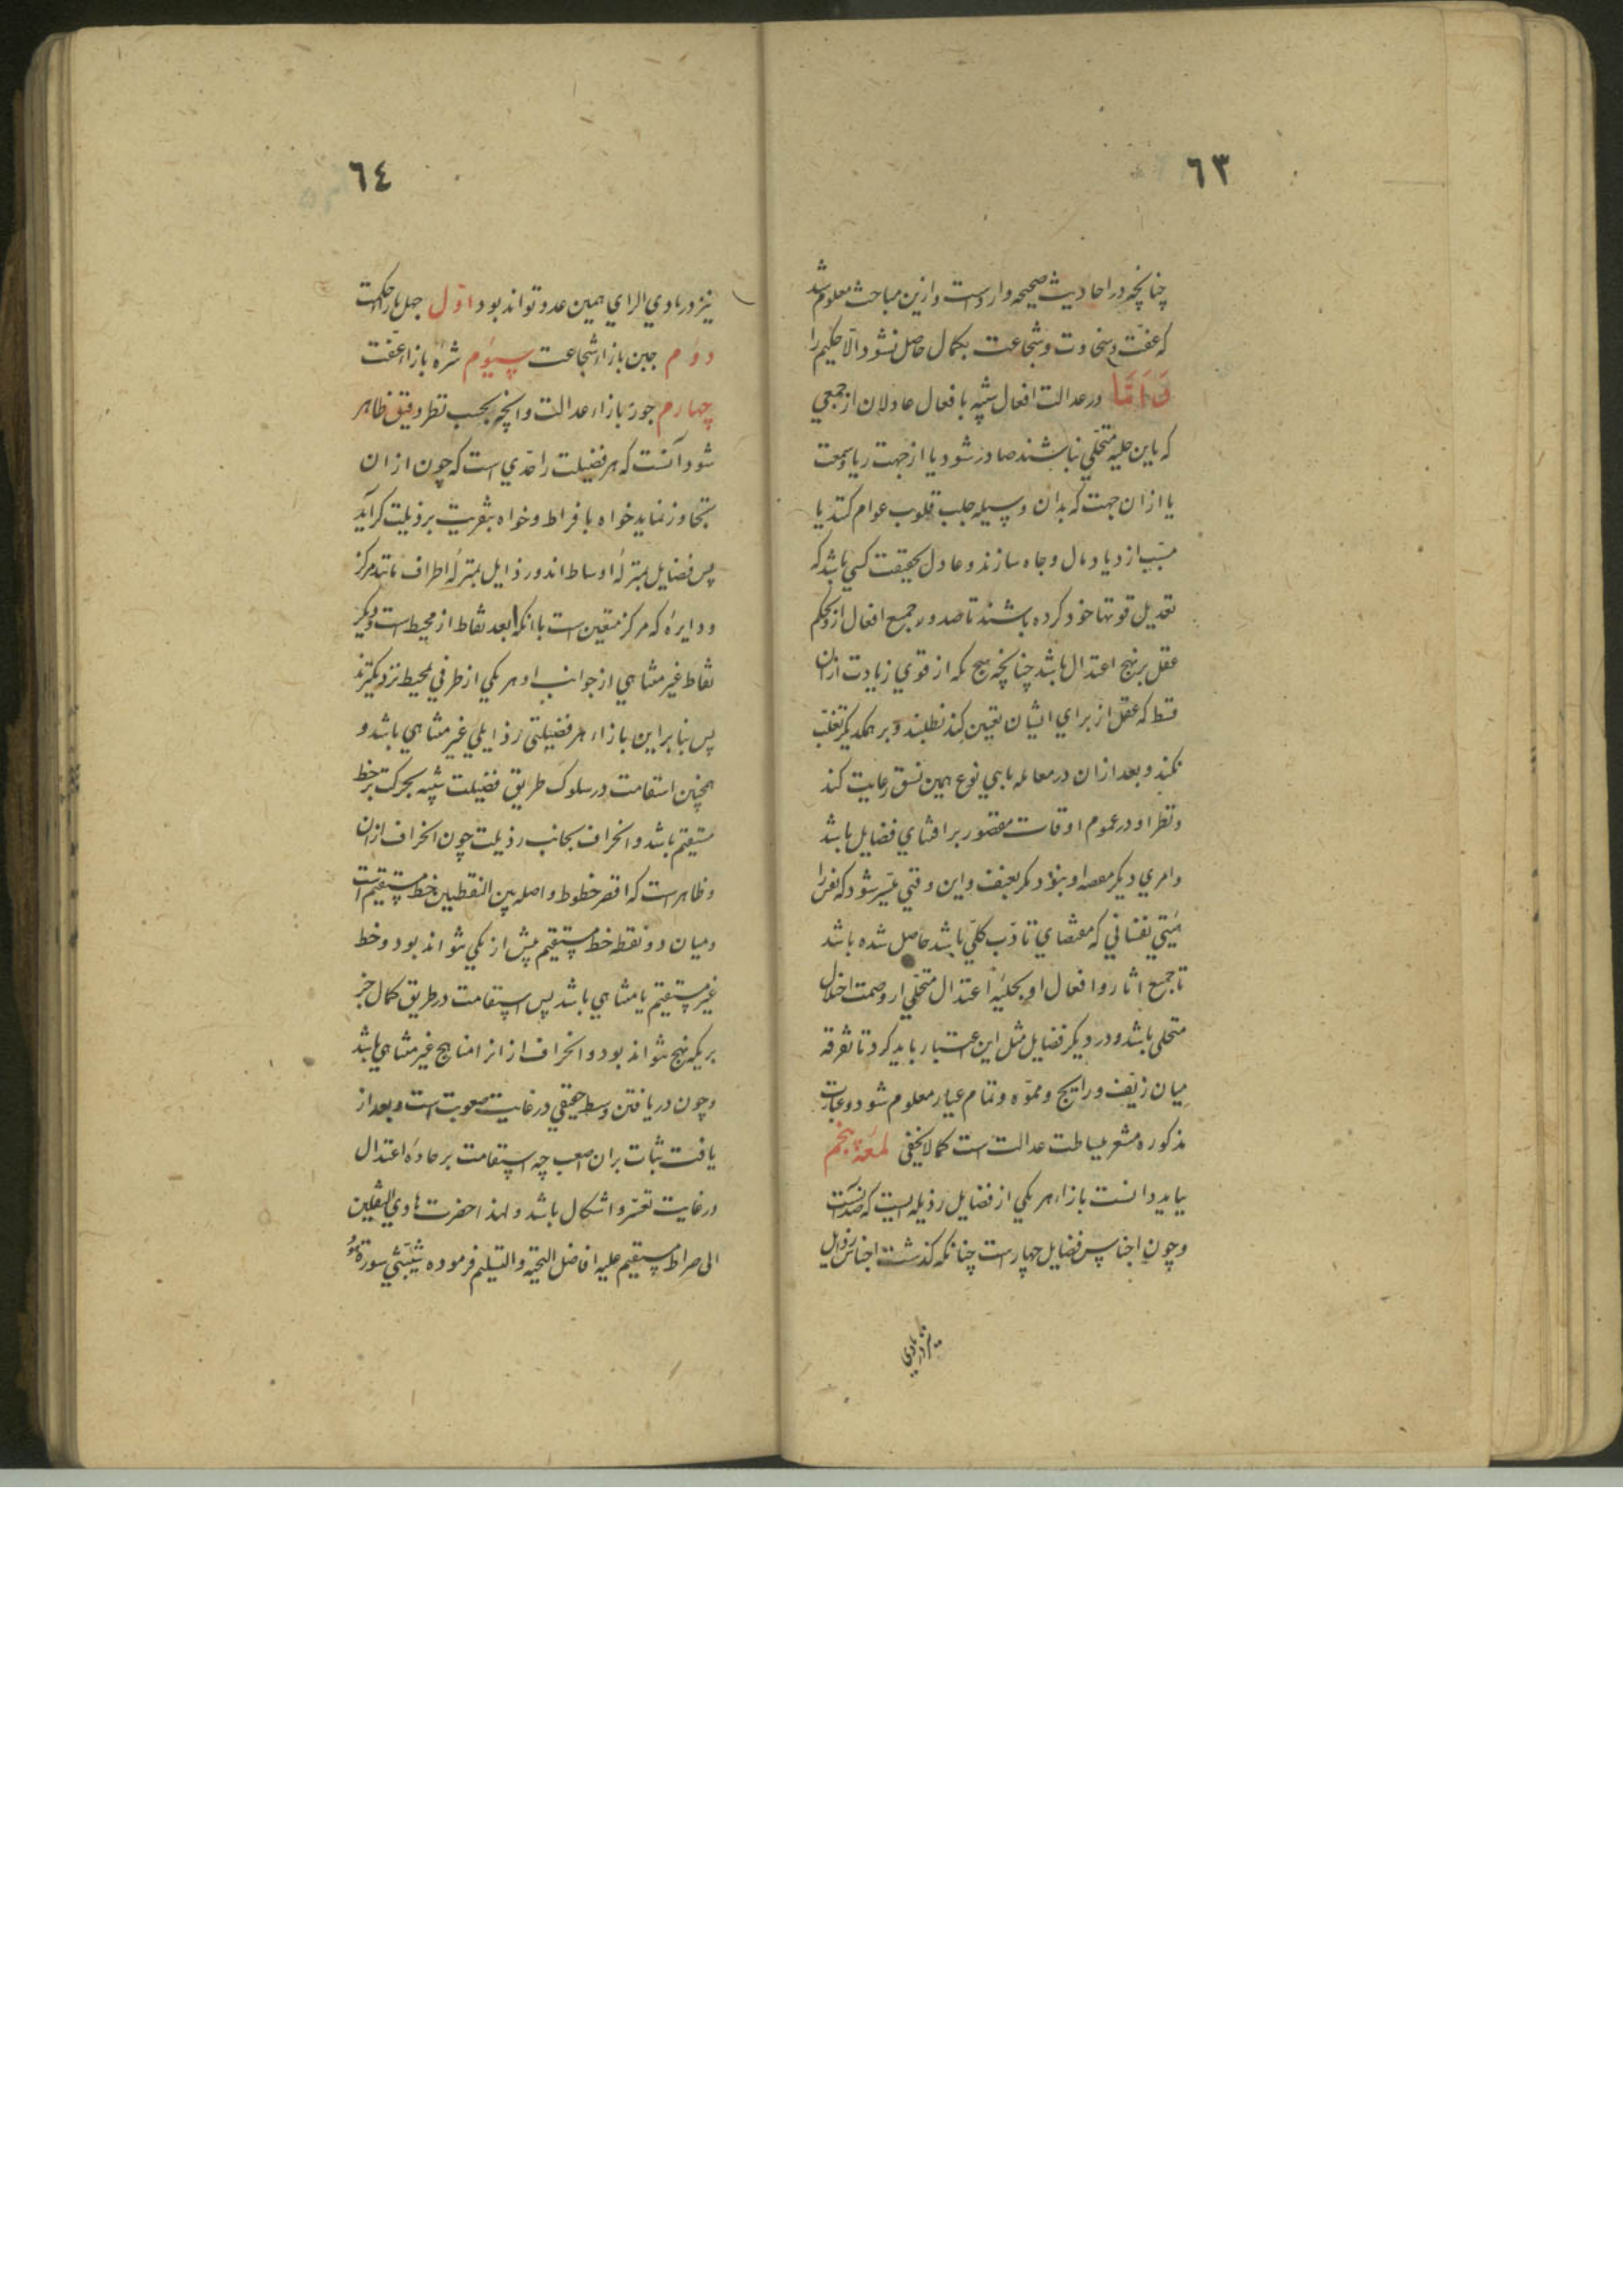 ٦٣
چنانچه در احادیث صحیحه وارد است و ازین مباحث معلوم شد
که عفّت و سخاوت و شجاعت بکمال حاصل نشود الّا حکیم را
وَ اَمَّا در عدالت افعال شبیه بافعال عادلان از جمعی
که باین حلیه متحلّی نباشند صادر شود یا از جهت ریا و سمعت
یا ازان جهت که بدان وسیله جلب قلوب عوام کنند یا
سبب ازدیاد مال و جاه سازند و عادل بحقیقت کسی باشد که
تعدیل قوتها خود کرده باشند تا صدور جمیع افعال ازو بحکم
عقل بر نهج اعتدال باشد چنانچه هیچ یکه از قوی زیادت ازان
قسط که عقل از برای ایشان تعیین کند نطلبند و بر همدیگر تغلّب
نکنند و بعد ازان در معامله با بنی نوع همین نسق رعایت کند
و نظر او در عموم اوقات مقصور بر اقتنای فضایل باشد
و امری دیگر مقصد او نبود دیگر بعنف و این وقتی میسّر شود که نفس را
هیئتی نفسانی که مقتضای تادّب کلّی باشد حاصل شده باشد
تا جمیع اثار و افعال او بحلیهٔ اعتدال متحلّی از وصمت اختلال
متخلی باشد و در دیگر فضایل مثل این اعتبار باید کرد تا تفرقه
میان زیّف و رایج و مموّه و تمام عیار معلوم شود و عبارت
مذکوره مشعر بساطت عدالت است کما لا یخفی لمعهٔ پنجم
بباید دانست بازاء هر یکی از فضایل رذیله ایست که ضد آنست
و چون اجناس فضایل چهارست چنانکه گذشت اجناس رذایل
نیز در بادی
٦٤
نیز در بادی الرای همین عدد تواند بود اوّل جهل بازاء حکمت
دوم جبن بازاء شجاعت سیوم شره بازاء عفّت
چهارم جور بازاء عدالت و انچه بحسب نظر دقیق ظاهر
شود آنست که هر فضیلت را حدّی است که چون از ان
تجاوز نماید خواه بافراط و خواه بتفریت برذیلت کراید
پس فضایل بمنزلهٔ اوساط اند و رذایل بمنزلهٔ اطراف مانند مرکز
و دایرهٔ که مرکز متعین است بانکه ابعد نقاط از محیط است و دیگر
نقاط غیر متناهی از جوانب او هر یکی از طرفی بمحیط نزدیکترند
پس بنا برین بازاء هر فضیلتی رذایلی غیر متناهی باشد و
همچنین استقامت در سلوک طریق فضیلت شبیه بحرکت بر خط
مستقیم باشد و انحراف بجانب رذیلت چون انحراف ازان
و ظاهر است که اقصر خطوط واصله بین النقطین خط مستقیم است
و میان دو نقطه خط مستقیم بیش از یکی نتواند بود و خط
غیر مستقیم نا متناهی باشد پس استقامت در طریق کمال جز
بر یکه نهج نتواند بود و انحراف از انرا مناهج غیر متناهی باشد
و چون دریافتن وسط حقیقی در غایت صعوبت است و بعد از
یافت ثبات بران اصعب چه استقامت بر جادهٔ اعتدال
در غایت تعسّر و اشکال باشد و لهذا حضرت هادی الثقلین
الی صراط مستقیم علیه افاضل التحیّه و التسلیم فرموده شیّبتنی سورة هود